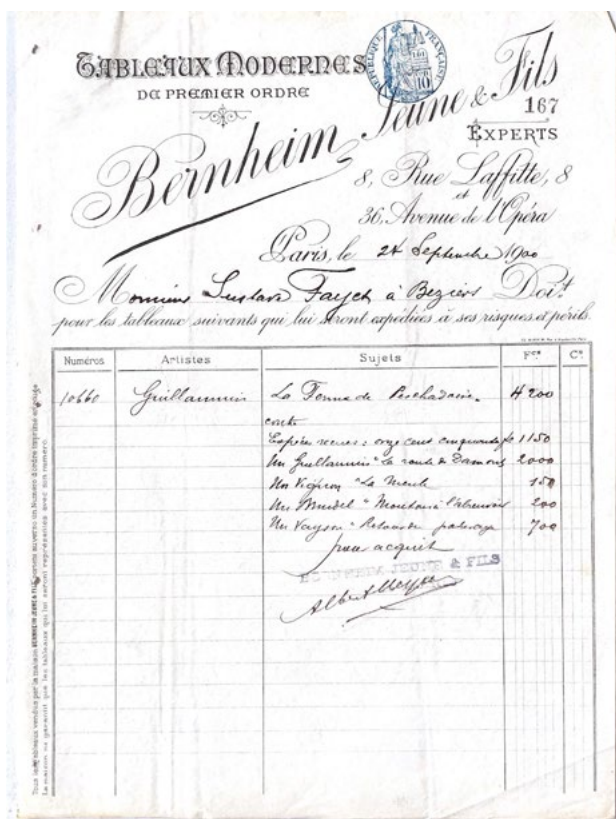 TABLEAUX MODERNES
DE PREMIER ORDRE
RÉPUBLIQUE FRANÇAISE
10
Bernheim Jeune & Fils
167
EXPERTS
8, Rue Laffitte, 8
et
36, Avenue de l'Opéra
Paris, le 24 Septembre 1900
Monsieur Gustave Fayet à Beziers Doit
pour les tableaux suivants qui lui seront expédiées à ses risques et périls.
Numéros Artistes Sujets Fcs Cs
10660 Guillaumin La Ferme de Peschadoire 4200
contre
Espèces reçues : onze cent cinquante fr 1150
Un Guillaumin "La route de Damous 2000
Un Vignon "La Meule 150
Un "Moutons à l'abreuvoir 200
Un Vayson "Retour de paturage 700
pour acquit
BERNHEIM JEUNE & FILS
Albert
Tous les tableaux vendus par la maison BERNHEIM JEUNE & FILS portent au verso un Numéro d'ordre imprimé en rouge
La maison ne garantit que les tableaux qui lui seront représentés avec son numéro.